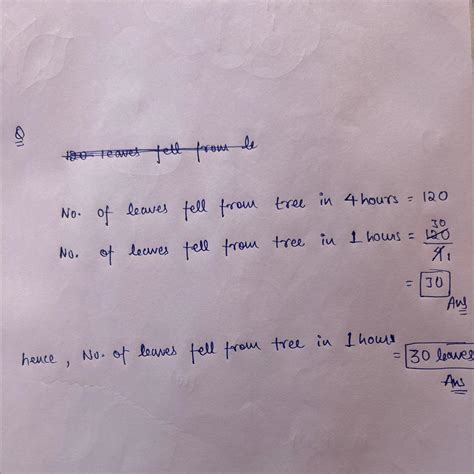 Q
120 leaves fell from le
No. of leaves fell from tree in 4 hours = 120
No. of leaves fell from tree in 1 hours = 30
120
4 1
= 30
Ans
hence, No. of leaves fell from tree in 1 hours = 30 leaves
Ans